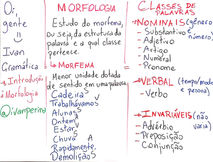 Oi,
gente
!!
Ivan
Gramática
→ Introdução
à
Morfologia
@ivanperino
MORFOLOGIA
Estudo do morfema,
ou seja, da estrutura da
palavra e a qual classe
pertence.
→ MORFEMA
Menor unidade dotada
de sentido em uma palavra
Cadeiras
Trabalhávamos
Alunas
Ontem
Estar
Chuva A
Rapidamente
Demolições
CLASSES DE
PALAVRAS
NOMINAIS (gênero
e número)
- Substantivo
- Adjetivo
- Artigo
- Numeral
- Pronome
→ VERBAL (tempo/modo
e pessoa)
- Verbo
→ INVARIÁVEIS (não
varia)
- Advérbio
- Preposição
- Conjunção